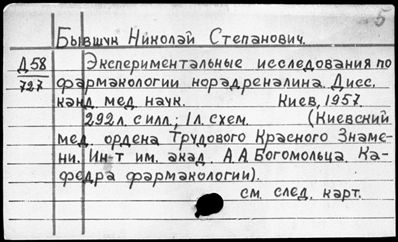 5
Бывшук Николай Степанович.
Д58 Экспериментальные исследования по
727 фармакологии норадреналина. Дисс.
канд. мед. наук. Киев, 1957.
292л. с илл.; 1л. схем. (Киевский
мед. ордена Трудового Красного Знаме-
ни. Ин-т им. акад. А.А.Богомольца. Ка-
федра фармакологии).
см. след. карт.